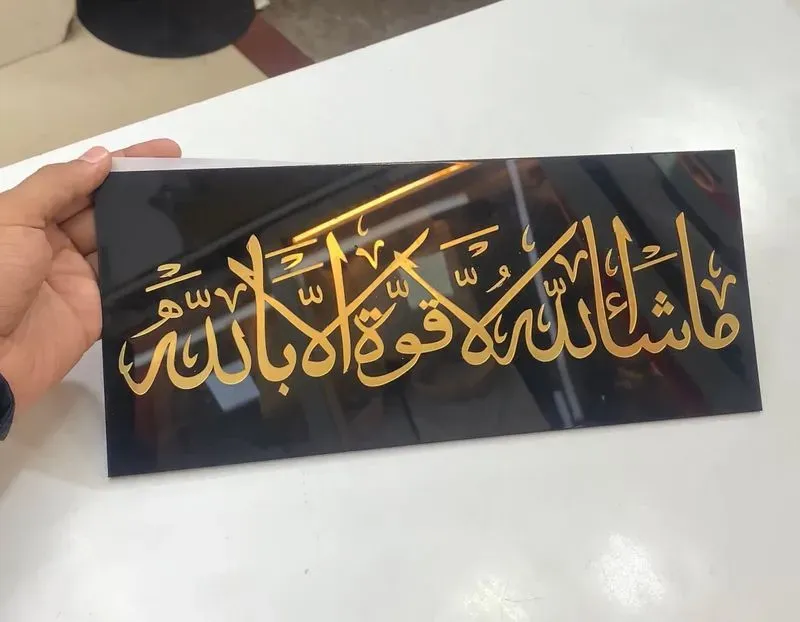 ماشائلله لا قوة الا بالله